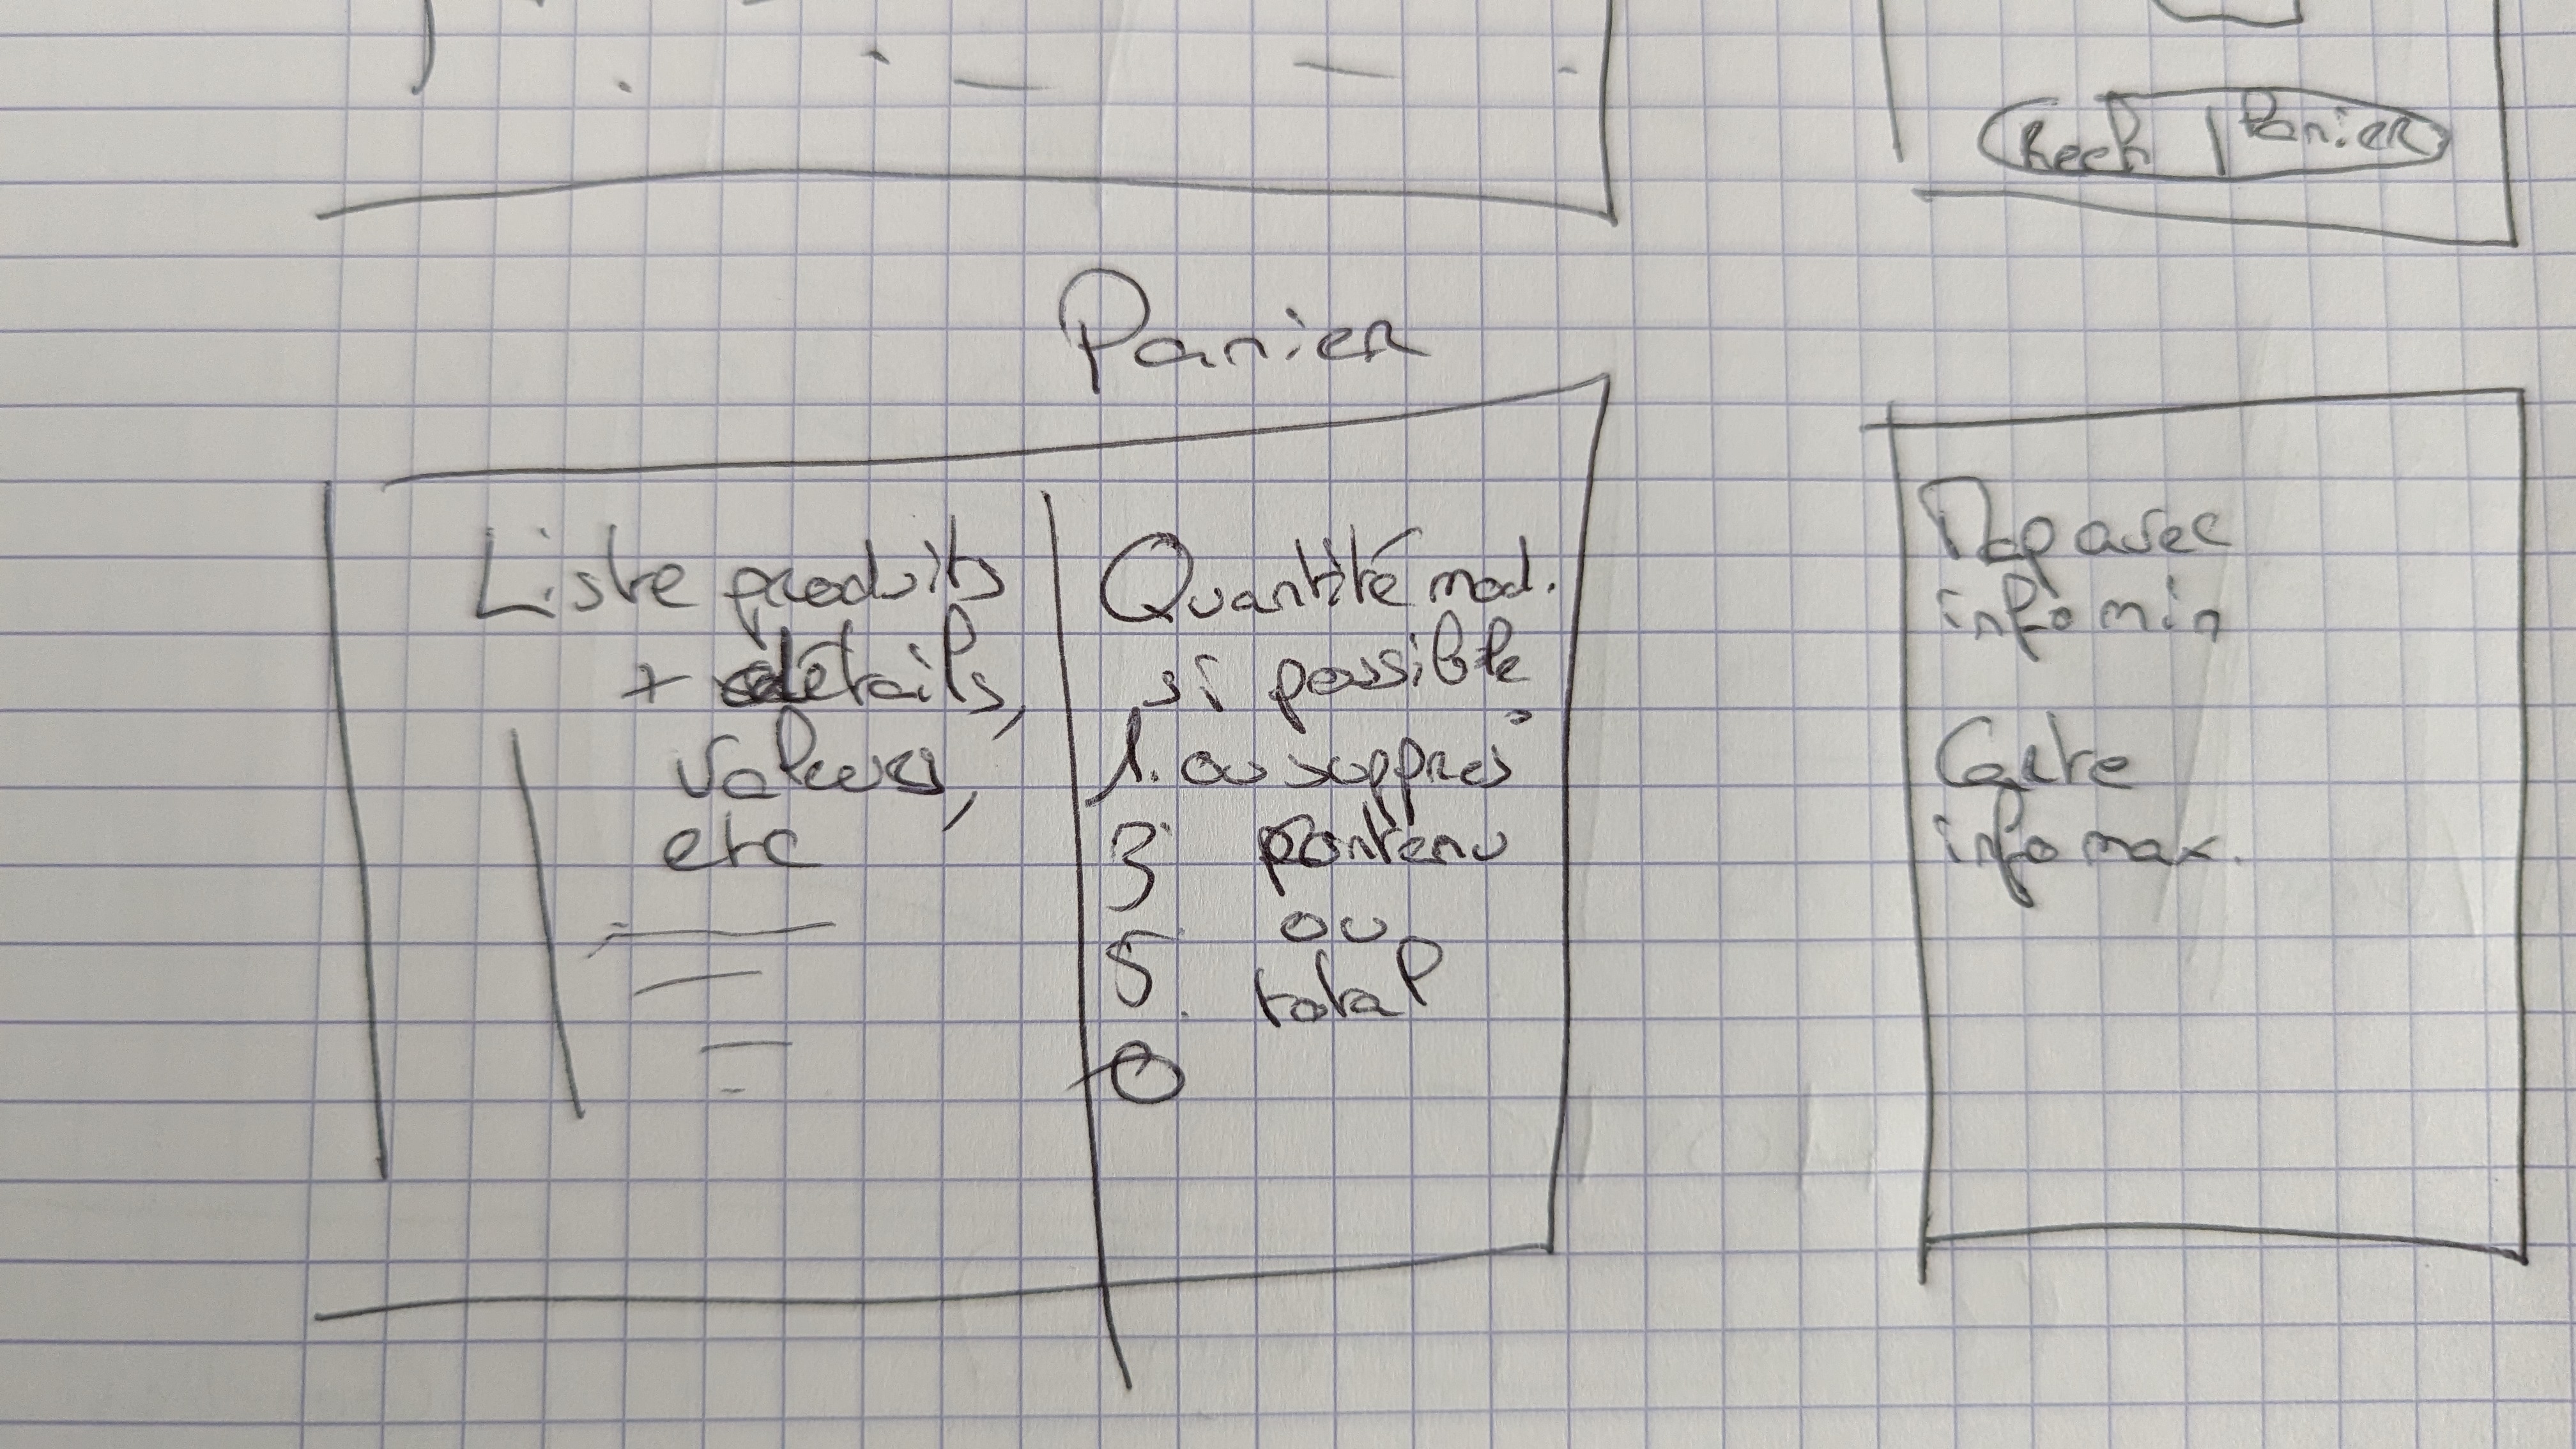 Rech | Panier
Panier
Liste produits
+ détails,
valeurs,
etc
Quantité mod.
si possible
1. ou suppres°
3 contenu
5. ou
total
0
Map avec
info min
Carte
info max.